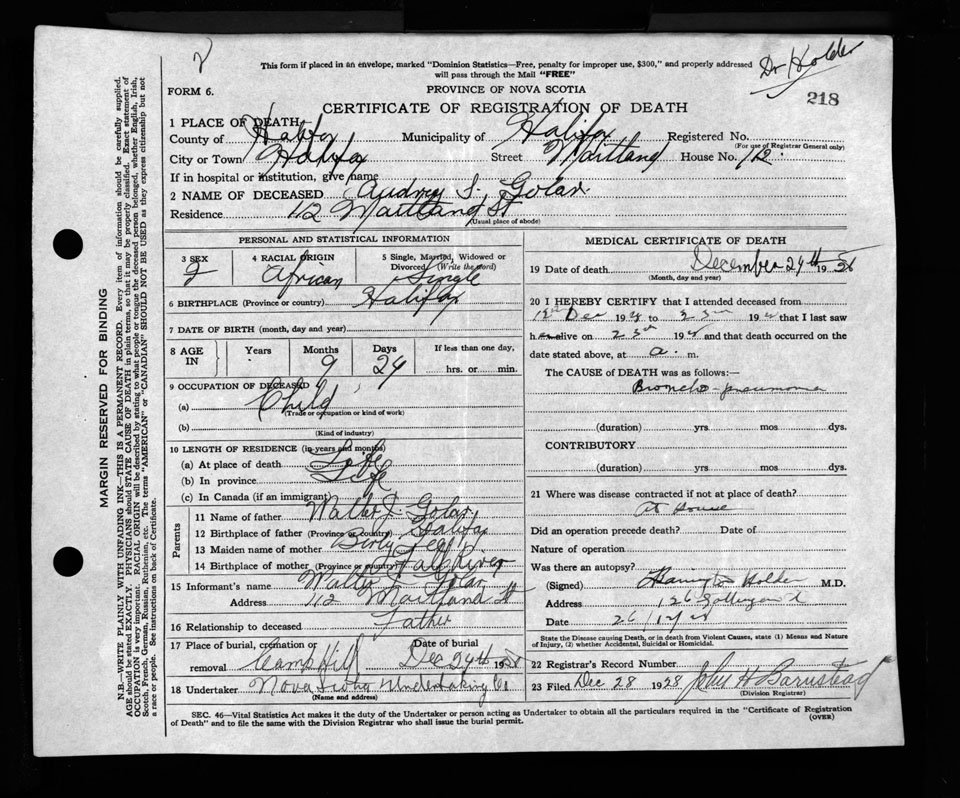 2
This form if placed in an envelope, marked "Dominion Statistics—Free, penalty for improper use, $300," and properly addressed
will pass through the Mail "FREE"
Dr Holder
FORM 6.
PROVINCE OF NOVA SCOTIA
218
CERTIFICATE OF REGISTRATION OF DEATH
1 PLACE OF DEATH
County of Halifax Municipality of Halifax Registered No.
(For use of Registrar General only)
City or Town Halifax Street Maitland House No. 112
If in hospital or institution, give name
2 NAME OF DECEASED Audrey Golar
Residence 112 Maitland St
(Usual place of abode)
PERSONAL AND STATISTICAL INFORMATION
3 SEX 4 RACIAL ORIGIN 5 Single, Married, Widowed or Divorced (Write the word)
African Single
6 BIRTHPLACE (Province or country) Halifax
7 DATE OF BIRTH (month, day and year)
8 AGE IN Years Months Days If less than one day,
9 24 hrs. or min.
9 OCCUPATION OF DECEASED
(a) Child
(Trade or occupation or kind of work)
(b)
(Kind of industry)
10 LENGTH OF RESIDENCE (in years and months)
(a) At place of death Life
(b) In province Life
(c) In Canada (if an immigrant)
Parents
11 Name of father Walter J. Golar
12 Birthplace of father (Province or country) Halifax
13 Maiden name of mother
14 Birthplace of mother (Province or country) Fall River
15 Informant's name Walter Golar
Address 112 Maitland St
16 Relationship to deceased Father
17 Place of burial, cremation or removal Camp Hill Date of burial Dec 29th 1928
18 Undertaker Nova Scotia Undertaking Co
(Name and address)
MEDICAL CERTIFICATE OF DEATH
19 Date of death December 24th 1928
(Month, day and year)
20 I HEREBY CERTIFY that I attended deceased from
Dec 19 to 19 that I last saw
h alive on 23rd 19 and that death occurred on the
date stated above, at a. m.
The CAUSE of DEATH was as follows:—
Broncho-pneumonia
(duration) yrs. mos. dys.
CONTRIBUTORY
(duration) yrs. mos. dys.
21 Where was disease contracted if not at place of death?
At house
Did an operation precede death? Date of
Nature of operation
Was there an autopsy?
(Signed) Holder M.D.
Address 126 Gottingen St
Date 26/12/28
State the Disease causing Death, or in death from Violent Causes, state (1) Means and Nature
of Injury, (2) whether Accidental, Suicidal or Homicidal.
22 Registrar's Record Number
23 Filed Dec 28 1928 John H Barnstead
(Division Registrar)
SEC. 46—Vital Statistics Act makes it the duty of the Undertaker or person acting as Undertaker to obtain all the particulars required in the "Certificate of Registration
of Death" and to file the same with the Division Registrar who shall issue the burial permit.
(OVER)
MARGIN RESERVED FOR BINDING
N.B.—WRITE PLAINLY WITH UNFADING INK—THIS IS A PERMANENT RECORD. Every item of information should be carefully supplied.
AGE should be stated EXACTLY. PHYSICIANS should STATE CAUSE OF DEATH in plain terms, so that it may be properly classified. Exact statement of
OCCUPATION is very important. RACIAL ORIGIN will be described by stating to what people or tongue the deceased person belonged, whether English, Irish,
Scotch, French, German, Russian, Ruthenian, etc. The terms "AMERICAN" or "CANADIAN" SHOULD NOT BE USED as they express citizenship but not
a race or people. See instructions on back of Certificate.